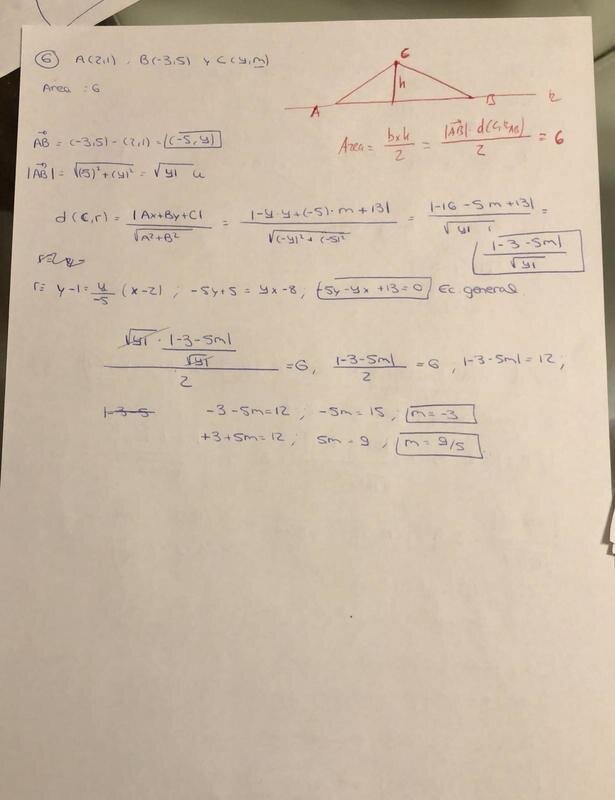 6 A(2,1), B(-3,5) y C(4,m)
Area : 6
A B r
C
h
Area = b x h / 2 = |AB|· d(C, r_AB) / 2 = 6
AB = (-3,5) - (2,1) = (-5,4)
|AB| = √(5)² + (4)² = √41 u
d(C,r) = |Ax+By+C| / √A²+B² = |-4·4+(-5)·m+13| / √(-4)²+(-5)² = |-16-5m+13| / √41 = |-3-5m| / √41
r= y-1 = 4/-5 (x-2) ; -5y+5 = 4x-8 ; -5y-4x+13=0 Ec general
√41 · |-3-5m| / √41 / 2 = 6, |-3-5m| / 2 = 6, |-3-5m| = 12 ;
|-3-5 -3-5m=12 ; -5m=15 ; m=-3
+3+5m=12 ; 5m=9 ; m=9/5